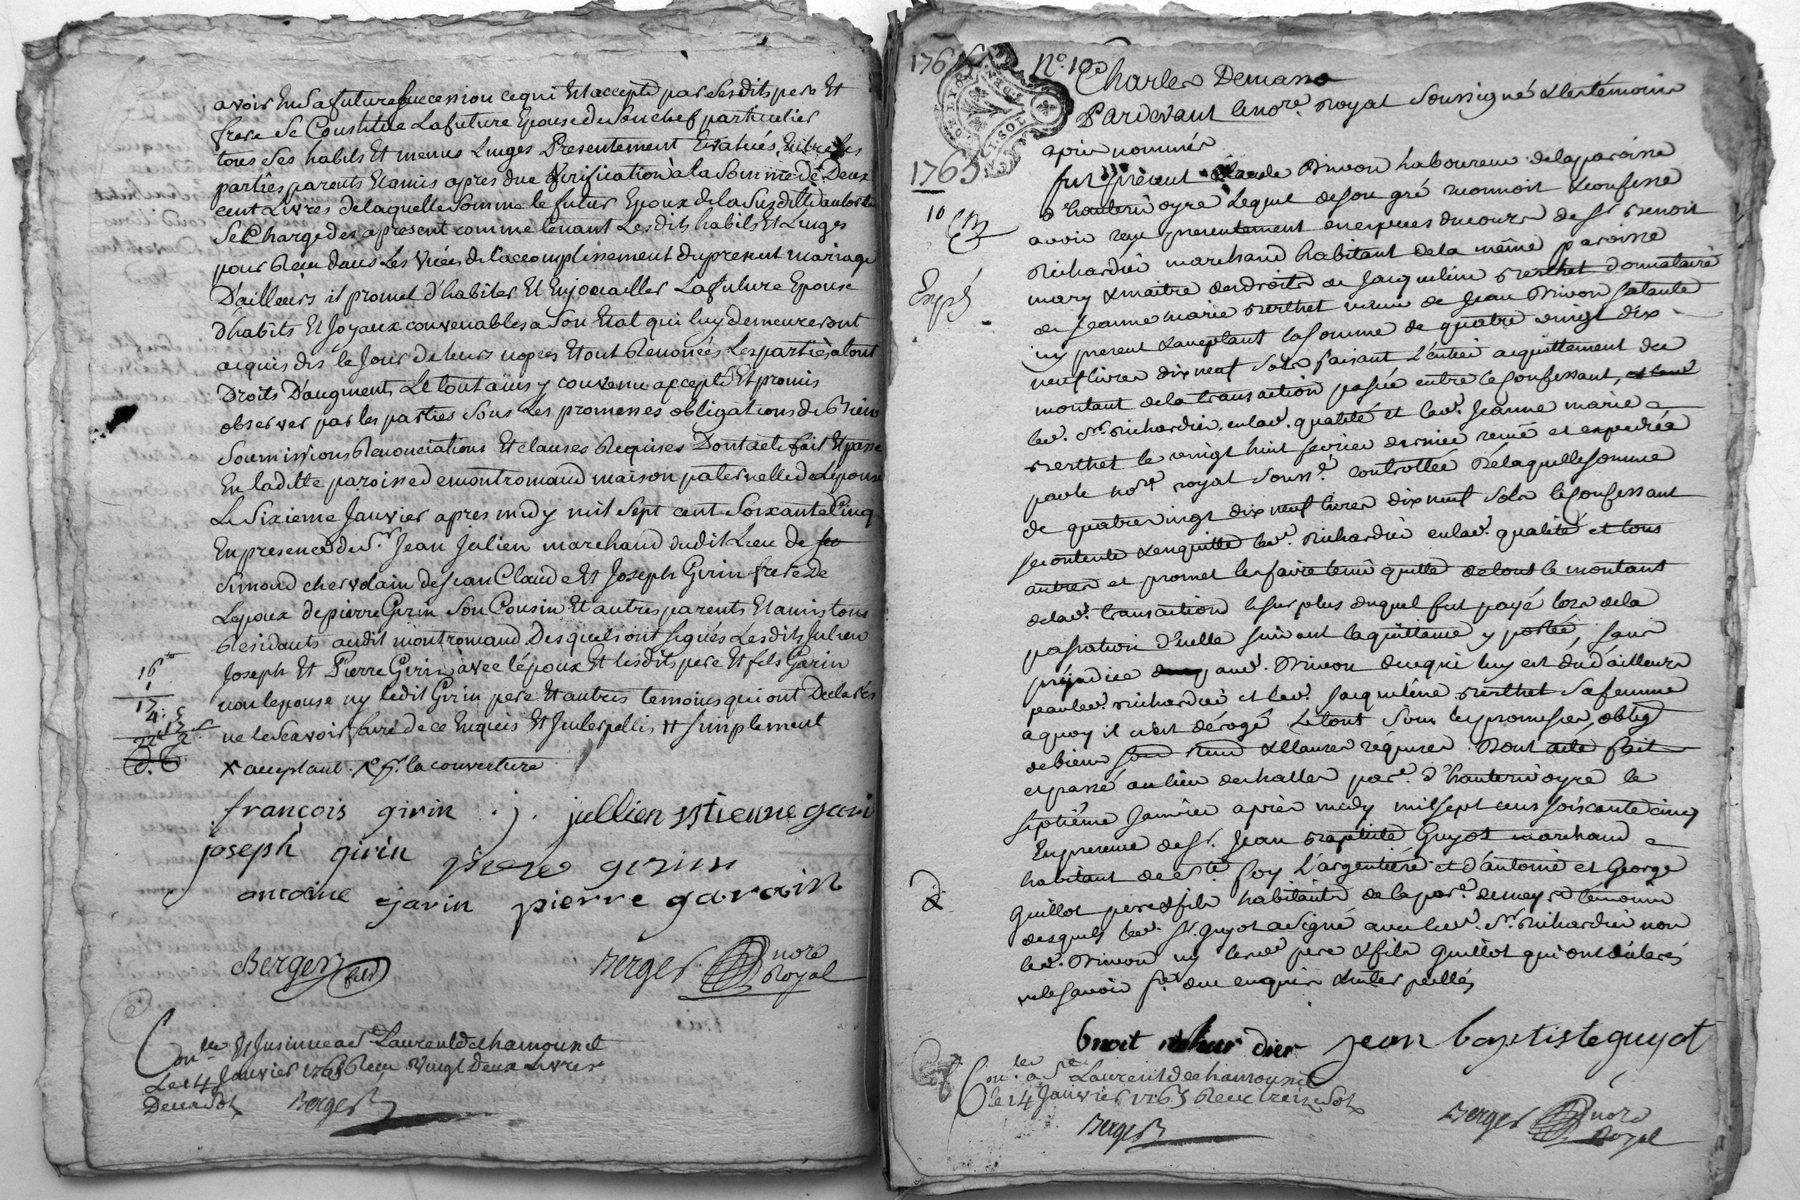 avoir En Sa future Succession ce qui Est accepté par Sesdits pere Et
frere Se Constitue La future Epouse de Son chef particulier
tous Ses habits Et menus Linges Presentement Evalués Entre les
parties parents Et amis apres due Verification à la Somme de Deux
cent Livres de laquelle Somme le futur Epoux de la Susditte
Se Charge des apresent comme tenant Lesdits habits Et Linges
pour Reçu dans Les Vuës de l'accomplissement du present mariage
D'ailleurs il promet d'habiter Et Enjoailler La future Epouse
D'habits Et Joyaux convenables a Son Etat qui luy demeureront
acquis des le Jour de leurs nopces Et ont Renoncés Les parties a tout
Droits D'augment, Le tout ainsy convenu accepté Et promis
observer par les parties Sous Les promesses obligations de Biens
Soumissions Renonciations Et clauses Requises Dont acte fait Et passé
En laditte paroisse de montromand maison paternelle de Lepouse
Le Sixieme Janvier apres midy mil Sept cent Soixante Cinq
En presence de Sr. Jean Julien marchand dudit Lieu de
Simond chervolain de Jean Claude Et Joseph Girin frere de
Lepoux de pierre Girin Son Cousin Et autres parents Et amis tous
Residants audit montromand Desquels ont signés Lesdits Julien
Joseph Et Pierre Girin avec lépoux Et lesdits pere Et fils Garin
non lepouse ny ledit Girin pere Et autres temoins qui ont Declarés
ne le Scavoir faire de ce Enquis Et Interpellés # Simplement
x acceptant la couverture
16
1
17
4
françois girin . j. jullien Estienne gari
joseph girin pierre girin
antoine garin pierre garain
Berger
Berger nore
Royal
Conlé Et Insinué a St Laurent de chamousset
Le 14 Janvier 1765 Recu Vingt Deux Livres
Deux Sols Berger
1765 No. 10
Charles Demasso
1765
10
Expé
Pardevant le nore. Royal Soussigné & les témoins
apres nommés
fut présent Claude Brivon Laboureur de la paroisse
d'hauterivoyre Lequel de son gré reconnoit & confesse
avoir reçu presentement en espéces du cours de Sr Benoit
Richardier marchand habitant de la même paroisse
mary & maitre des droits de Jacqueline Berthet donnataire
de Jeanne Marie Berthet veuve de Jean Brivon Sa tante
icy present & acceptant la somme de quatre vingt dix
neuf livres dix neuf Sols faisant L'entier acquittement du
montant de la transaction passée entre le Confessant,
led. Sr. Richardier, en lad. qualité et lad. Jeanne marie
Berthet le vingt huit fevrier dernier
par le nore. royal Souss.é controllée De laquelle somme
de quatre vingt dix neuf livres dix neuf Sols le Confessant
se contente & en quitte led. Richardier en lad. qualité et tous
autres et promet les faire tenir quitte de tout le montant
de lad. transaction le Surplus duquel fut payé lors de la
passation d'icelle suivant la quittance y portée, sans
préjudice aud. Brivon de ce qui luy est dû d'ailleurs
par led. Richardier et lad. Jacqueline Berthet Sa femme
a quoy il n'est dérogé Le tout Sous les promesses, oblig.
de biens & clauses réquises Dont acte fait
et passé au lieu des halles parse. d'hauterivoyre le
septiéme Janvier après midy mil sept cens soixante cinq
En presence de Sr. Jean Baptiste Guyot marchand
habitant de Ste foy L'argentiére et d'antoine et George
Guillot pere & fils habitants de la parse. de meys témoins
desquels led. Sr. Guyot a Signé avec led. Sr. Richardier non
led. Brivon ny lesd. pere & fils Guillot qui ont déclarés
ne le Savoir fre. de ce enquis & interpellés
benoit richardier jean baptiste guyot
Conlé a St Laurent de chamousset
le 14 Janvier 1765 Recu treize Sols
Berger
Berger nore
Royal